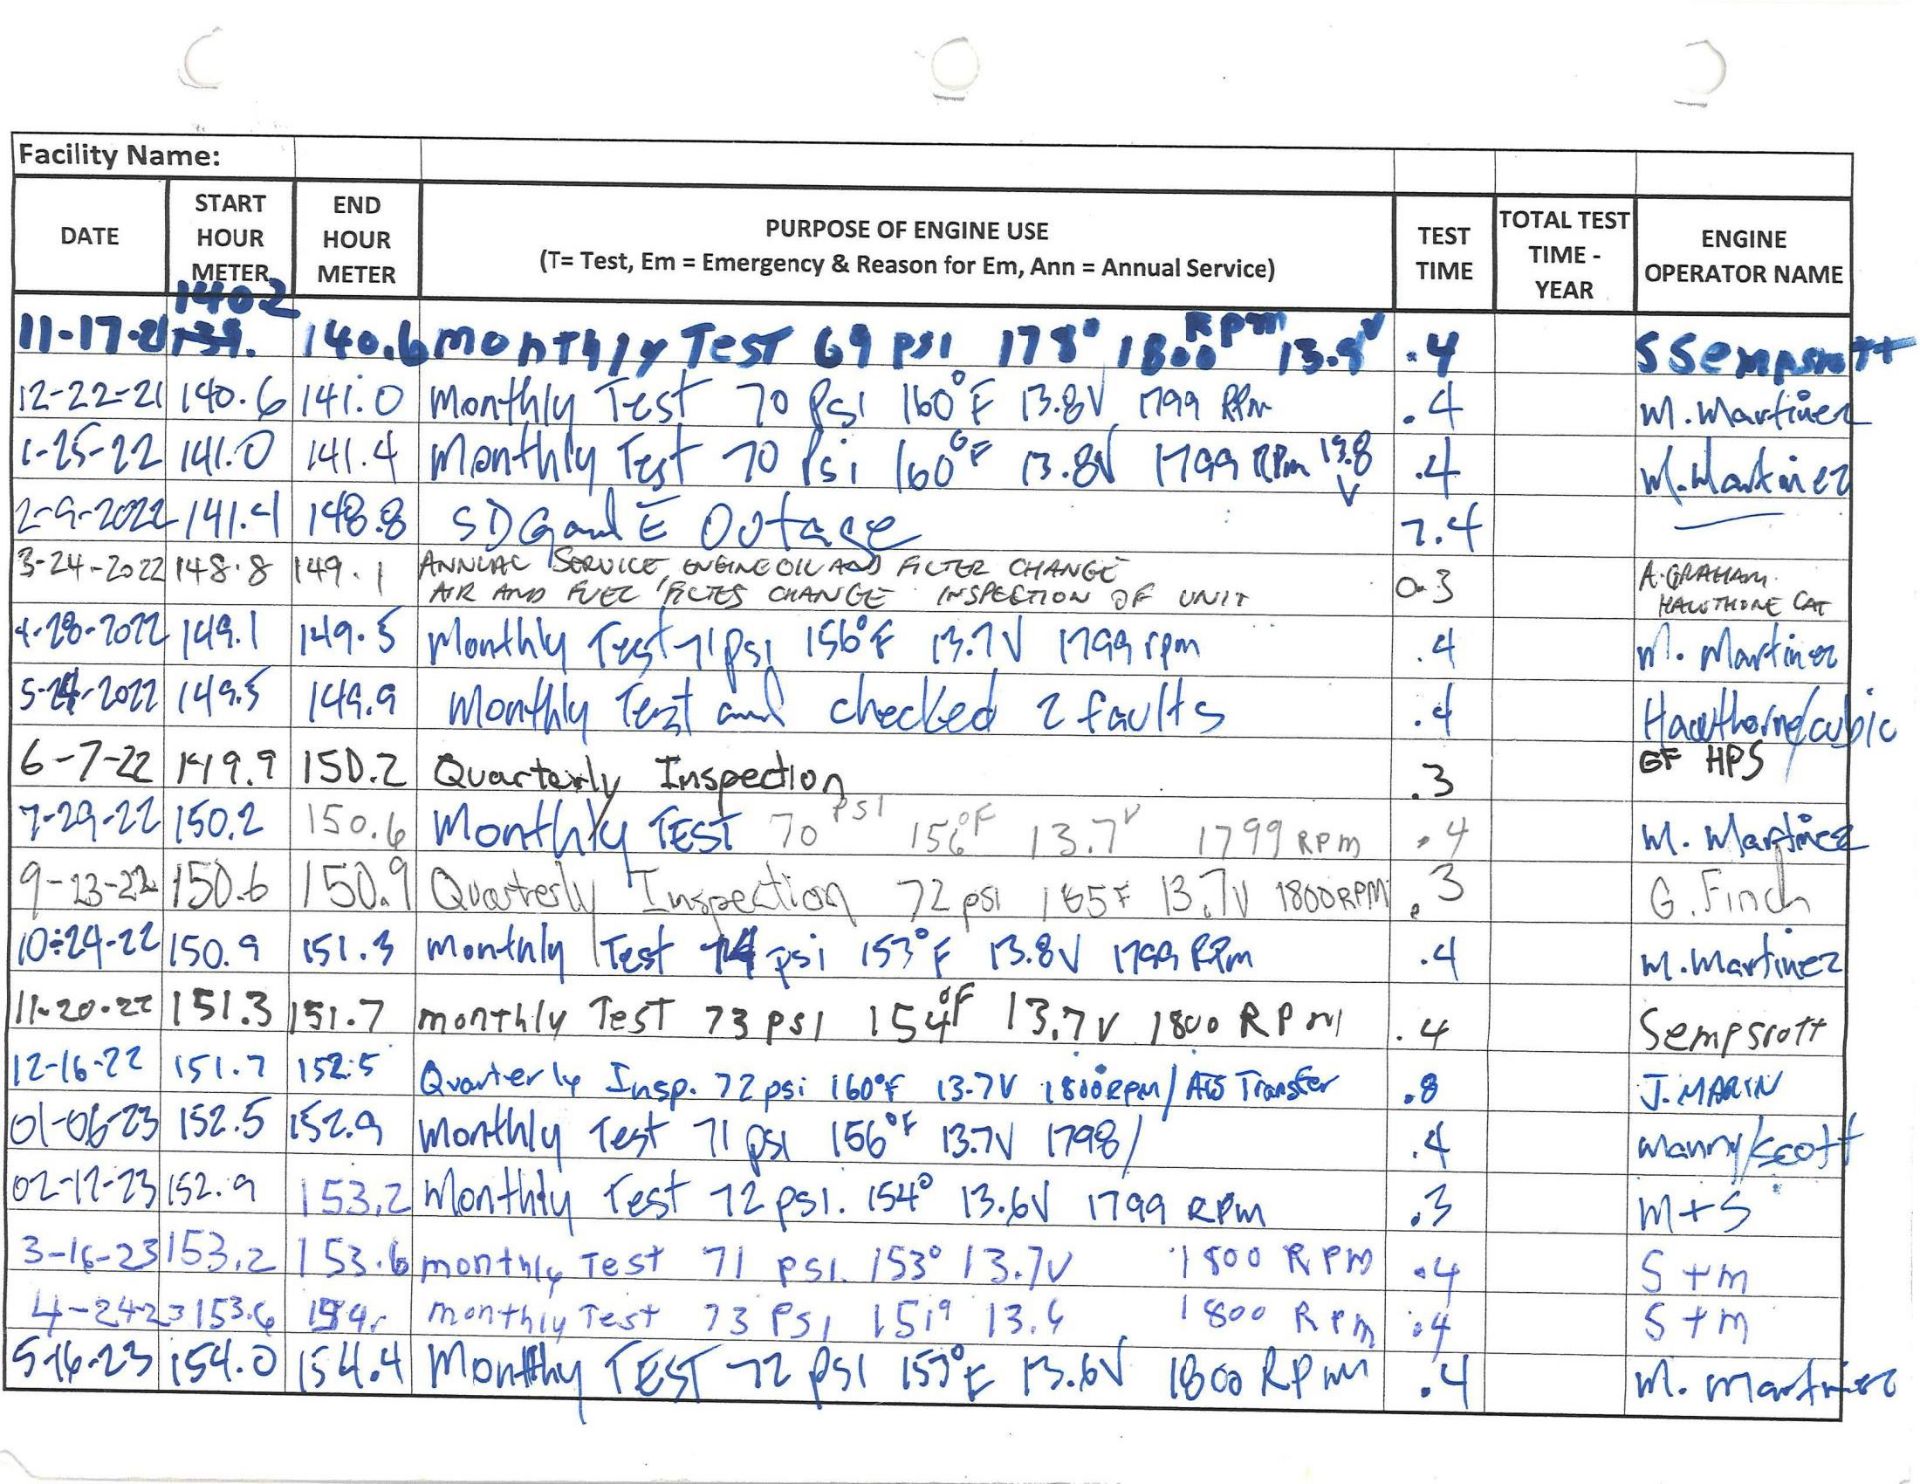 Facility Name:
DATE START HOUR METER END HOUR METER PURPOSE OF ENGINE USE (T= Test, Em = Emergency & Reason for Em, Ann = Annual Service) TEST TIME TOTAL TEST TIME - YEAR ENGINE OPERATOR NAME
1402
11-17-21 139. 140.6 monthly Test 69 psi 178° 1800 RPM 13.8V .4 S Sempsrott
12-22-21 140.6 141.0 Monthly Test 70 Psi 160°F 13.8V 1799 RPm .4 M. Martinez
1-25-22 141.0 141.4 Monthly Test 70 Psi 160°F 13.8V 1799 RPm 13.8 V .4 M. Martinez
2-9-2022 141.4 148.8 SDG and E Outage 7.4
3-24-2022 148.8 149.1 ANNUAL SERVICE ENGINE OIL AND FILTER CHANGE 0.3 A. GRAHAM
AIR AND FUEL FILTES CHANGE INSPECTION OF UNIT HAWTHORNE CAT
4-28-2022 149.1 149.5 Monthly Test 71 psi 156°F 13.7V 1799 rpm .4 M. Martinez
5-24-2022 149.5 149.9 Monthly Test and checked 2 faults .4 Hawthorne/cubic
6-7-22 149.9 150.2 Quarterly Inspection .3 GF HPS
7-29-22 150.2 150.6 Monthly TEST 70 PSI 156°F 13.7V 1799 RPM .4 M. Martinez
9-23-22 150.6 150.9 Quarterly Inspection 72 psi 165F 13.7V 1800RPM .3 G. Finch
10-24-22 150.9 151.3 Monthly Test 74 psi 153°F 13.8V 1799 RPm .4 M. Martinez
11-20-22 151.3 151.7 monthly Test 73 psi 154°F 13.7V 1800 RPM .4 Sempsrott
12-16-22 151.7 152.5 Quarterly Insp. 72 psi 160°F 13.7V 1800RPM/ ATS Transfer .8 J. MARIN
01-06-23 152.5 152.9 Monthly Test 71 psi 156°F 13.7V 1798/ .4 Manny/Scott
02-12-23 152.9 153.2 Monthly Test 72 psi. 154° 13.6V 1799 RPm .3 M+S
3-16-23 153.2 153.6 monthly Test 71 psi. 153° 13.7V 1800 RPM .4 S+m
4-24-23 153.6 154. monthly Test 73 PSI 151° 13.6 1800 RPm .4 S+m
5-16-23 154.0 154.4 Monthly TEST 72 PSI 153°F 13.6V 1800 RPM .4 M. Martinez